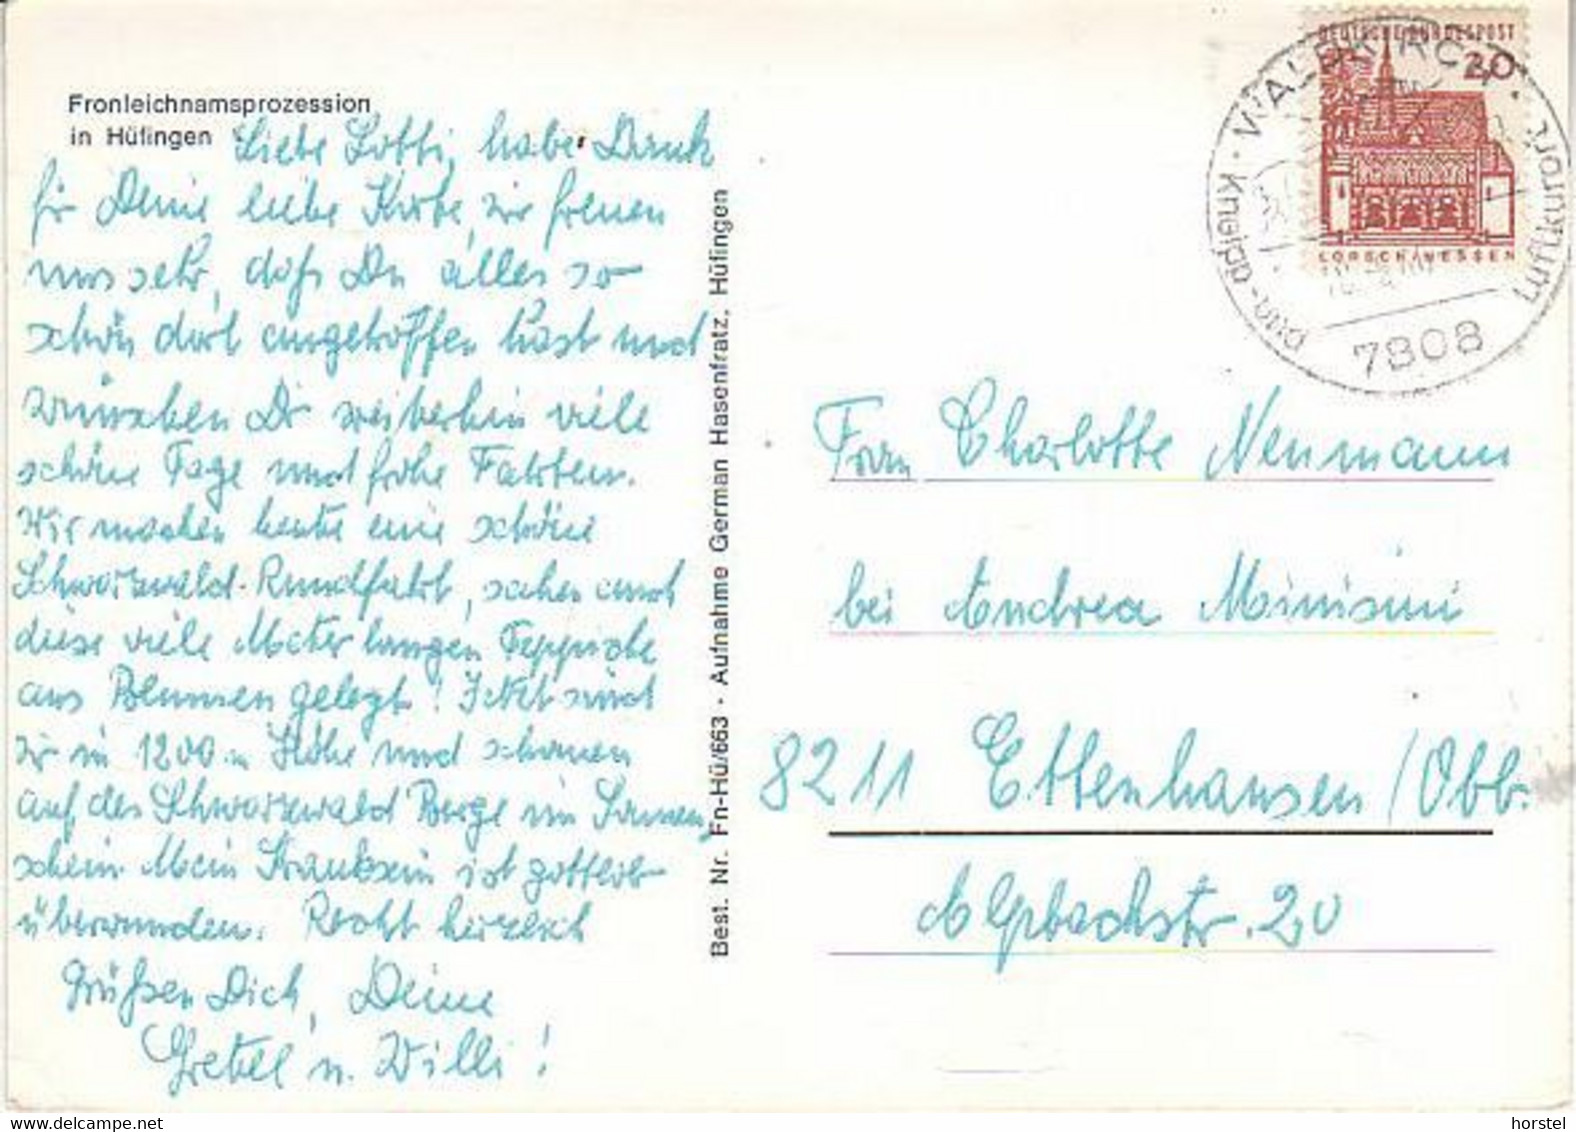 Fronleichnamsprozession
in Hüfingen
Liebe Lotti, habe Dank
für Deine liebe Karte, wir freuen
uns sehr, daß Du alles so
schön dort angetroffen hast und
wünschen Dir weiterhin viele
schöne Tage und frohe Fahrten.
Wir machen heute eine schöne
Schwarzwald-Rundfahrt, sahen auch
diese viele Meter langen Teppiche
aus Blumen gelegt! Jetzt sind
wir in 1200 m Höhe und schauen
auf des Schwarzwald Berge im Sonnen-
schein. Mein Kranksein ist gottlob
überwunden. Recht herzlich
grüßen Dich, Deine
Gretel u. Willi!
Best. Nr. Fn-Hü/663 · Aufnahme German Hasenfratz, Hüfingen
DEUTSCHE BUNDESPOST
20
LORSCH/HESSEN
WALDKIRCH · Luftkurort
Kneipp- und
7808
Frau Charlotte Neumann
bei Andrea Minisini
8211 Ettenhausen/Obb.
Alpbachstr. 20
horstel